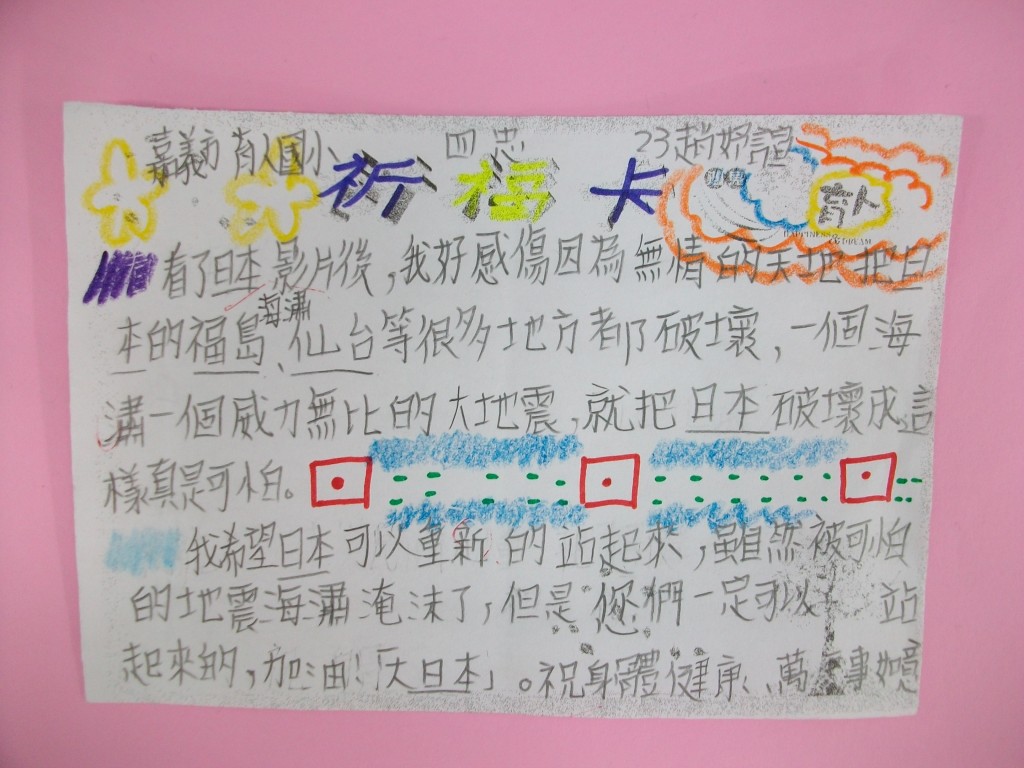 嘉義市 育人國小 四忠 23趙妤誼
祈福卡
幼獅
育人
HAPPINESS & DREAM
看了日本影片後,我好感傷因為無情的天地把日
海瀟
本的福島、仙台等很多地方都破壞,一個海
瀟一個威力無比的大地震,就把日本破壞成這
樣真是可怕。
我希望日本可以重新的站起來,雖然被可怕
的地震海瀟淹沫了,但是您們一定可以 站
起來的,加油!「大日本」。祝身體健康、萬事如意